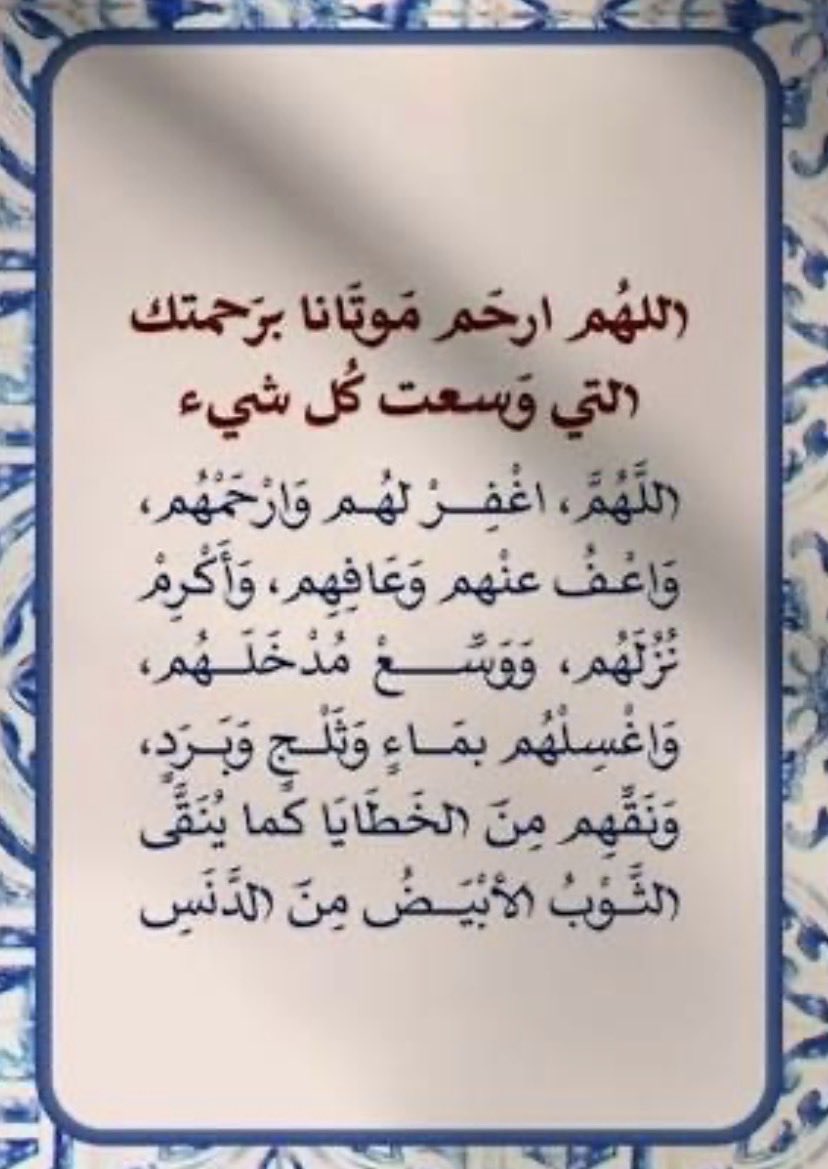 اللهُم ارحَم مَوتَانا برَحمتك
التي وَسعت كُل شيء
اللَّهُمَّ، اغْفِـــرْ لهُـم وَارْحَمْهُم،
وَاعْـفُ عنْهم وَعَافِهِم، وَأَكْرِمْ
نُزُلَهُم، وَوَسِّـــــعْ مُدْخَلَـــهُم،
وَاغْسِلْهُم بمَـــاءٍ وَثَلْـــجٍ وَبَـــرَدٍ،
وَنَقِّهِم مِنَ الخَطَايَا كَما يُنَقَّى
الثَّـــوْبُ الأبْيَـــضُ مِنَ الدَّنَسِ